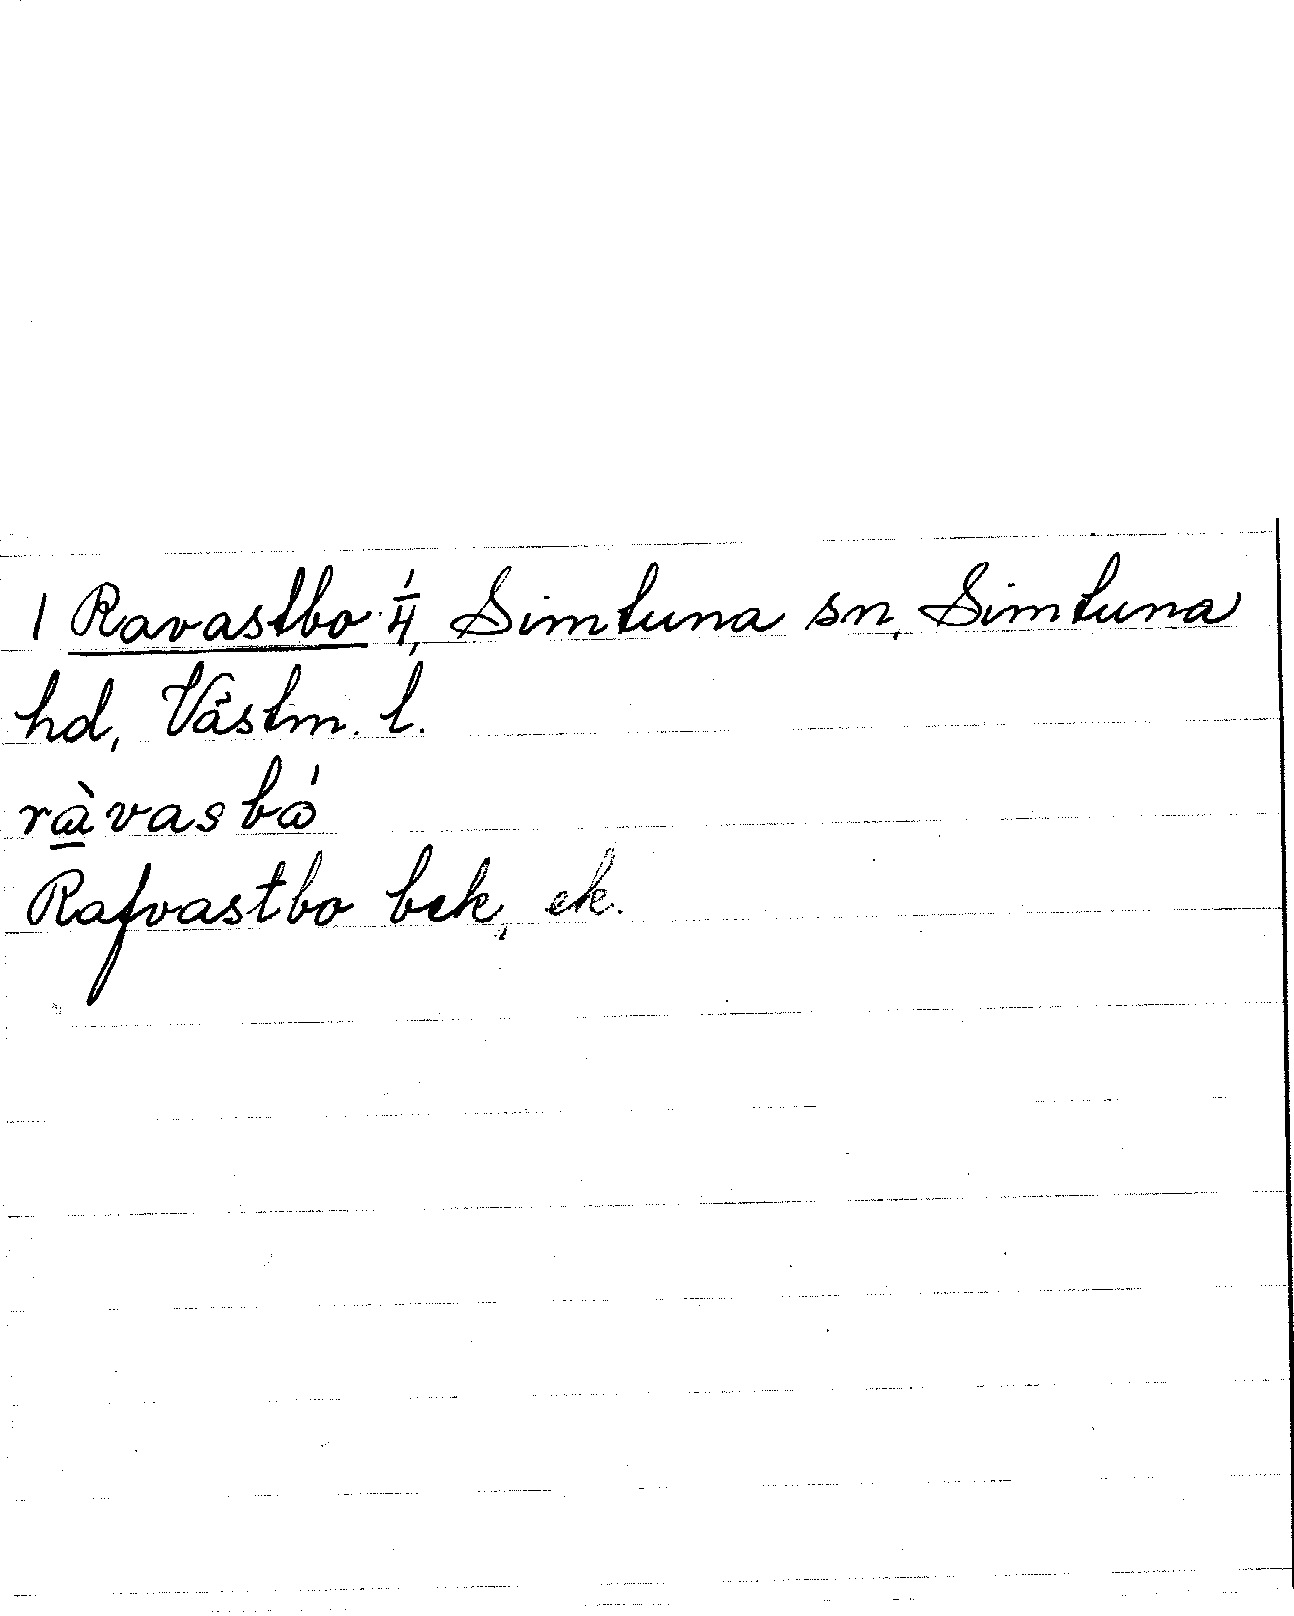 1 Ravastbo 1/4, Simtuna sn, Simtuna
hd, Västm. l.
ràvasbó
Rafvastbo bek, ek.